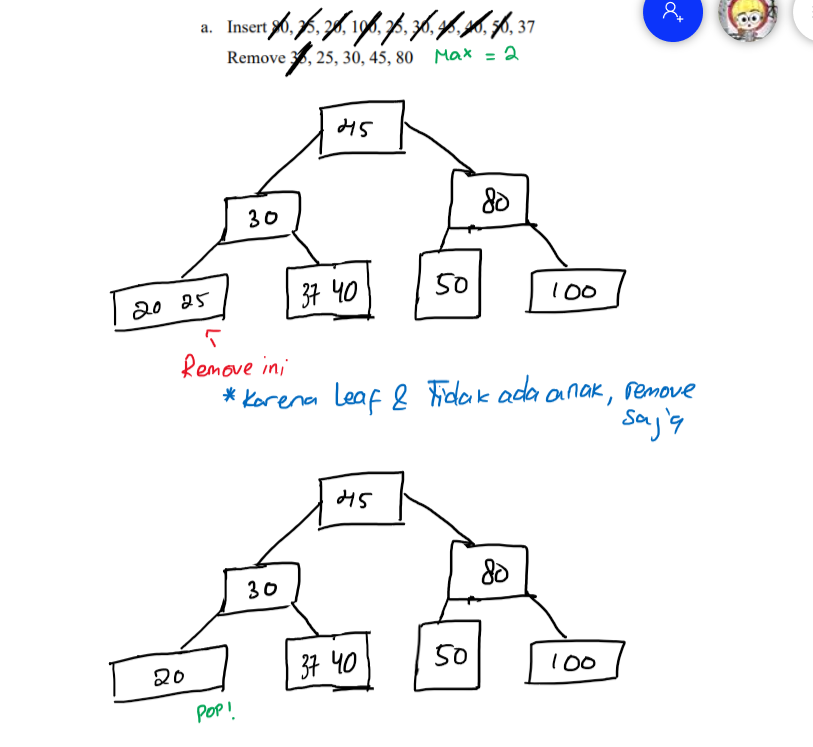 a. Insert 80, 35, 20, 100, 25, 30, 45, 40, 50, 37
Remove 35, 25, 30, 45, 80 Max = 2
45
30 80
20 25 37 40 50 100
Remove ini
* Karena Leaf & Tidak ada anak, remove
saja
45
30 80
20 37 40 50 100
POP!